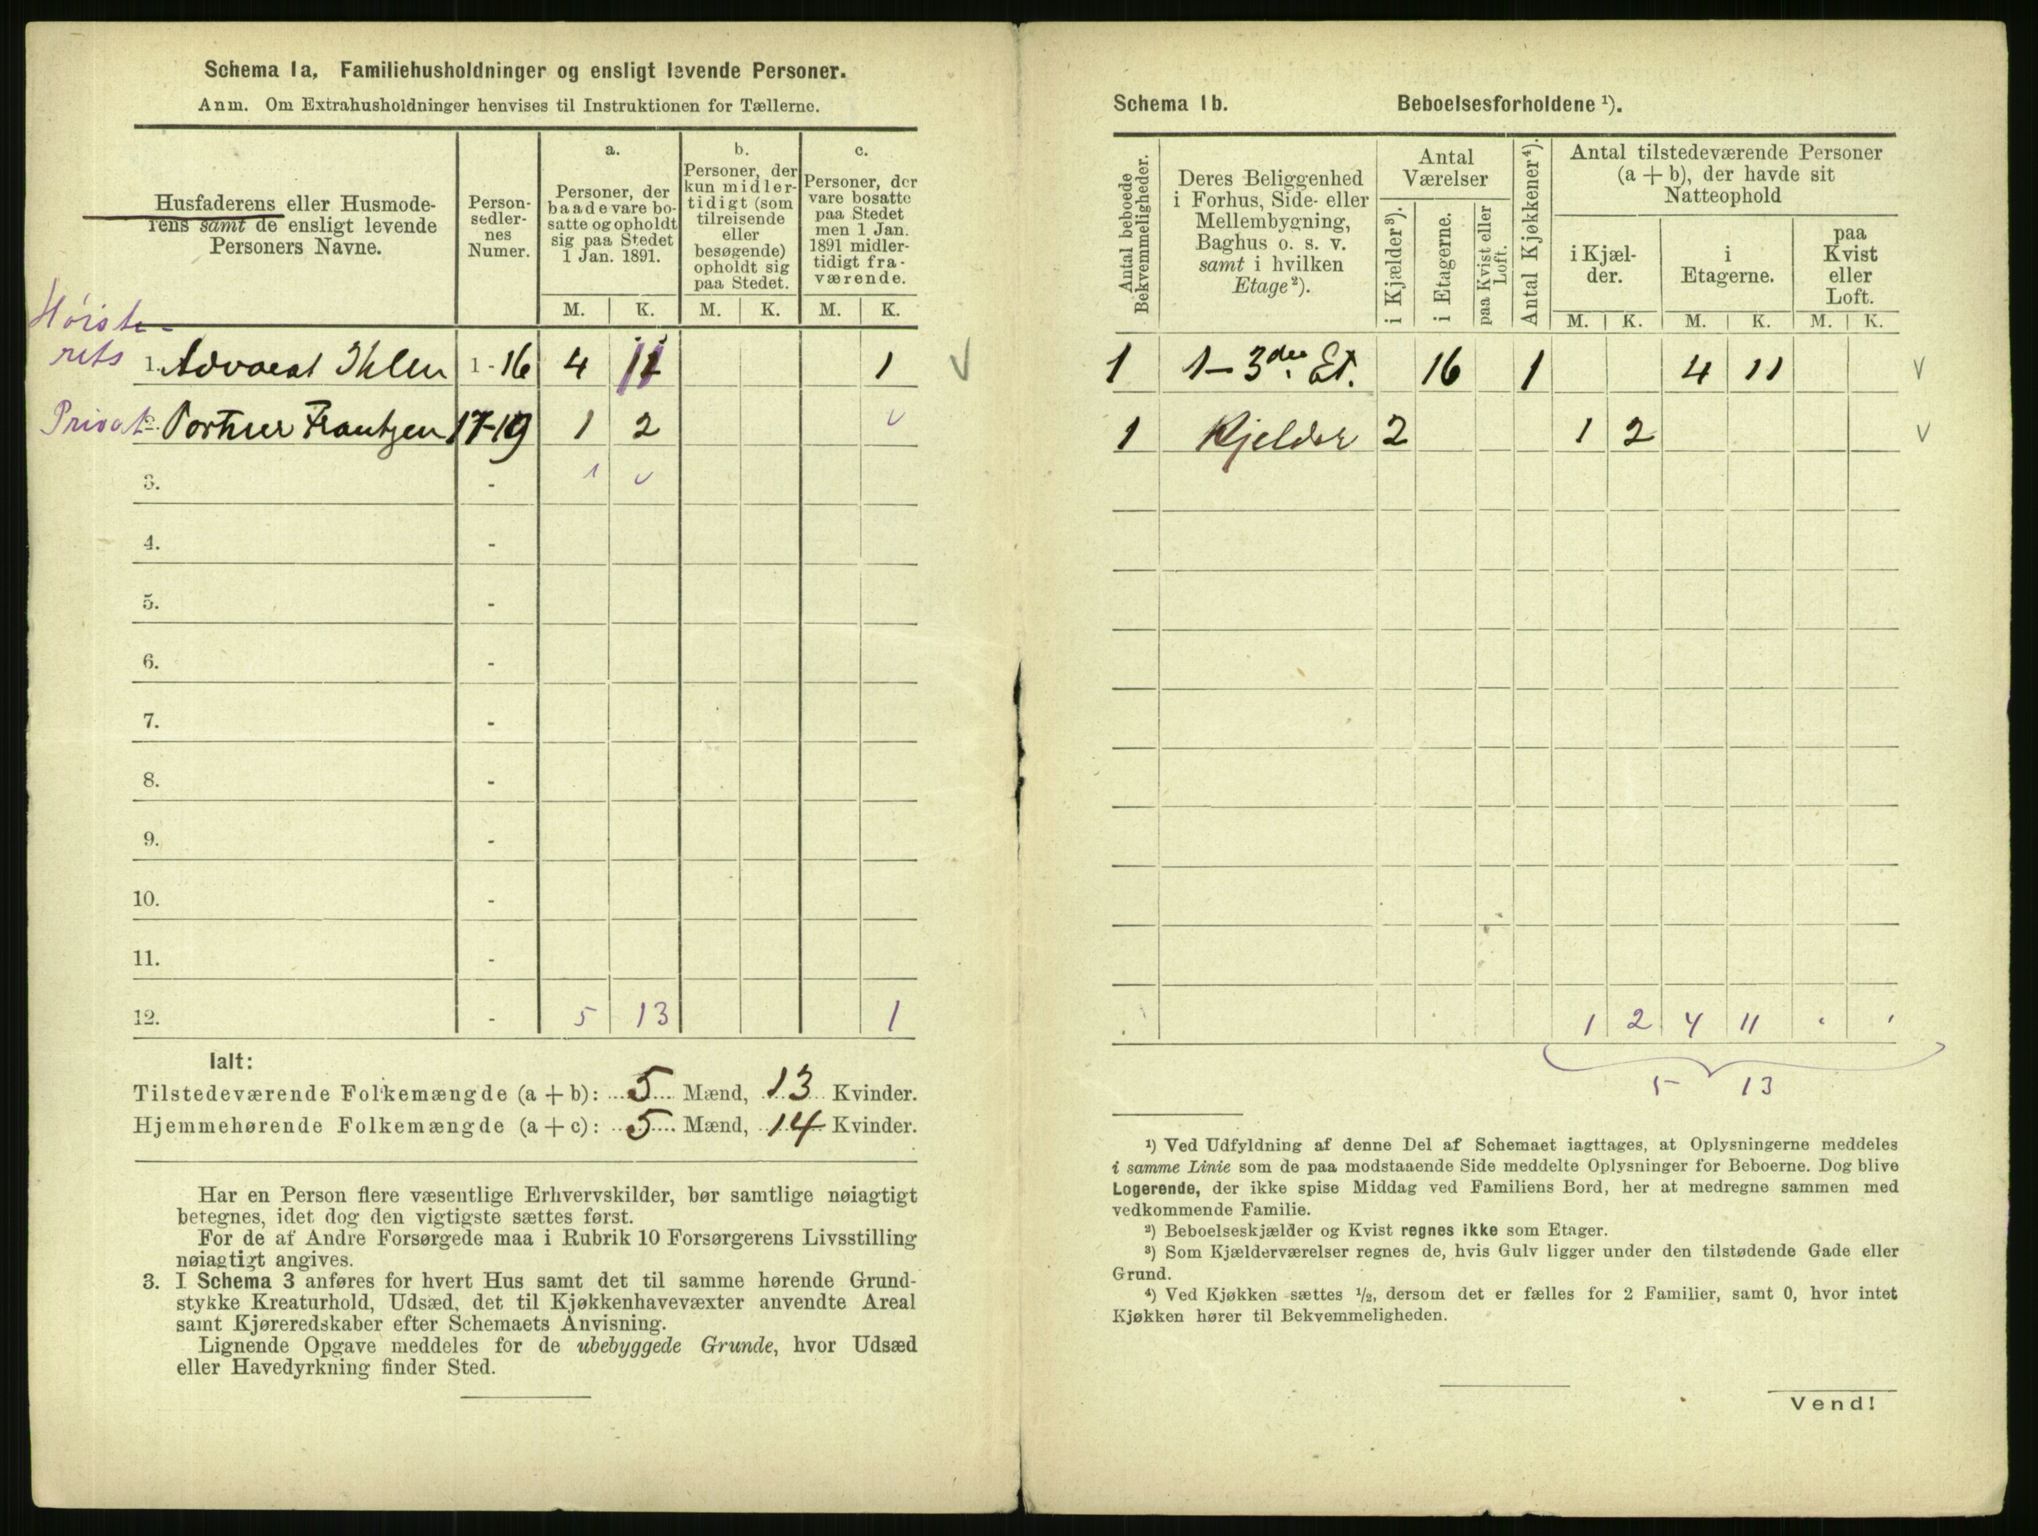 Schema 1a, Familiehusholdninger og ensligt levende Personer.
Anm. Om Extrahusholdninger henvises til Instruktionen for Tællerne.
Husfaderens eller Husmoderens samt de ensligt levende Personers Navne.
Person-sedlernes Numer.
a. Personer, der baade vare bosatte og opholdt sig paa Stedet 1 Jan. 1891.
b. Personer, der kun midlertidigt (som tilreisende eller besøgende) opholdt sig paa Stedet.
c. Personer, der vare bosatte paa Stedet men 1 Jan. 1891 midlertidigt fraværende.
M. K. M. K. M. K.
Høiste-
rets
1. Advocat Ihlen 1 - 16 4 11 1 V
Privat 2. Portner Frantzen 17-19 1 2
3. -
4. -
5. -
6. -
7. -
8. -
9. -
10. -
11. -
12. - 5 13 1
Ialt:
Tilstedeværende Folkemængde (a + b): 5 Mænd, 13 Kvinder.
Hjemmehørende Folkemængde (a + c): 5 Mænd, 14 Kvinder.
Har en Person flere væsentlige Erhvervskilder, bør samtlige nøiagtigt
betegnes, idet dog den vigtigste sættes først.
For de af Andre Forsørgede maa i Rubrik 10 Forsørgerens Livsstilling
nøiagtigt angives.
3. I Schema 3 anføres for hvert Hus samt det til samme hørende Grund-
stykke Kreaturhold, Udsæd, det til Kjøkkenhavevæxter anvendte Areal
samt Kjøreredskaber efter Schemaets Anvisning.
Lignende Opgave meddeles for de ubebyggede Grunde, hvor Udsæd
eller Havedyrkning finder Sted.
Schema 1b. Beboelsesforholdene ¹).
Antal beboede Bekvemmeligheder.
Deres Beliggenhed i Forhus, Side- eller Mellembygning, Baghus o. s. v. samt i hvilken Etage ²).
Antal Værelser
i Kjælder ³).
i Etagerne.
paa Kvist eller Loft.
Antal Kjøkkener ⁴).
Antal tilstedeværende Personer (a + b), der havde sit Natteophold
i Kjælder.
i Etagerne.
paa Kvist eller Loft.
M. K. M. K. M. K.
1 1-3die Et. 16 1 4 11 V
1 Kjelder 2 1 2 V
1 2 4 11
5 13
¹) Ved Udfyldning af denne Del af Schemaet iagttages, at Oplysningerne meddeles
i samme Linie som de paa modstaaende Side meddelte Oplysninger for Beboerne. Dog blive
Logerende, der ikke spise Middag ved Familiens Bord, her at medregne sammen med
vedkommende Familie.
²) Beboelseskjælder og Kvist regnes ikke som Etager.
³) Som Kjælderværelser regnes de, hvis Gulv ligger under den tilstødende Gade eller
Grund.
⁴) Ved Kjøkken sættes ½, dersom det er fælles for 2 Familier, samt 0, hvor intet
Kjøkken hører til Bekvemmeligheden.
Vend!